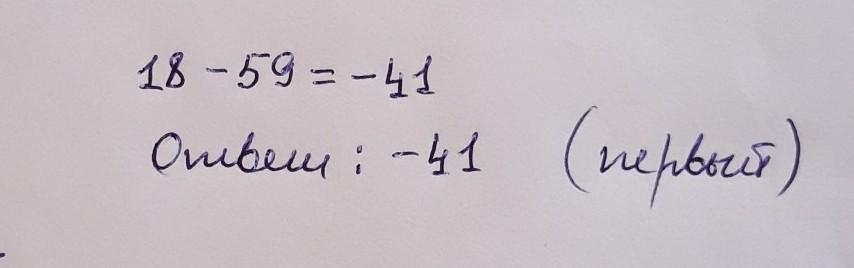 18 - 59 = - 41
Ответ : - 41 (первый)